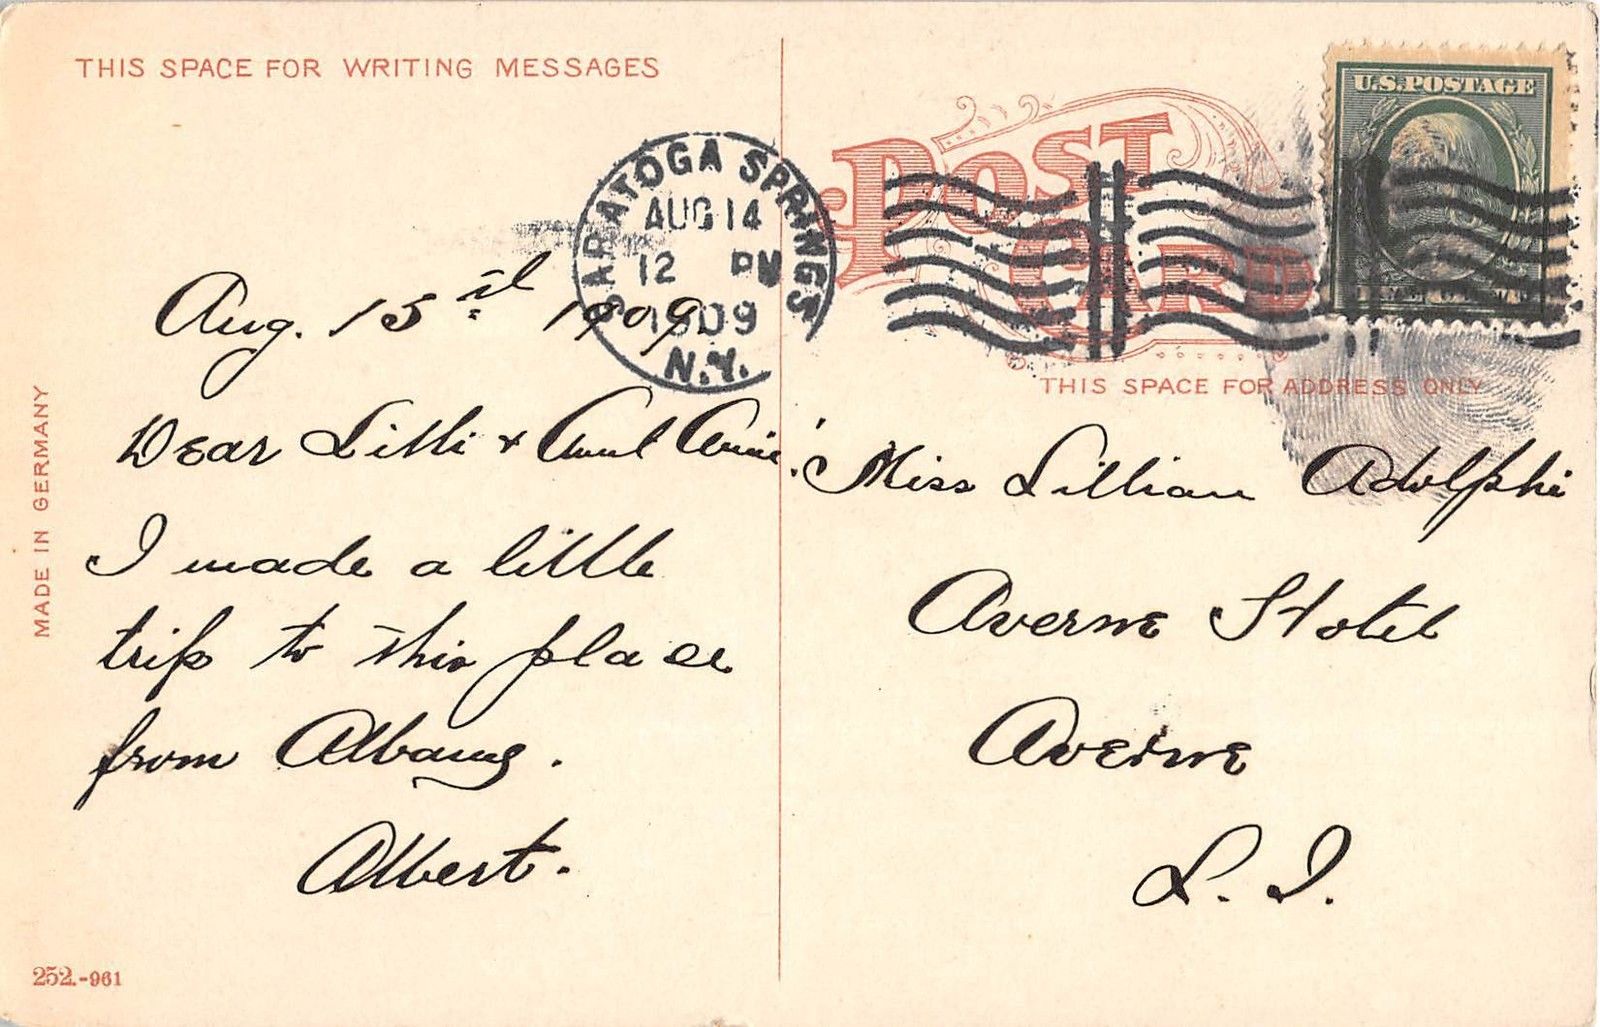 THIS SPACE FOR WRITING MESSAGES
Aug. 13th 1909
Dear Lilli + Aunt Annie!
I made a little
trip to this place
from Albany.
Albert.
MADE IN GERMANY
252.-961
SARATOGA SPRINGS
AUG 14
12 PM
1909
N.Y.
POST
CARD
U.S. POSTAGE
THIS SPACE FOR ADDRESS ONLY
Miss Lillian Adolphi
Averne Hotel
Averne
L. I.